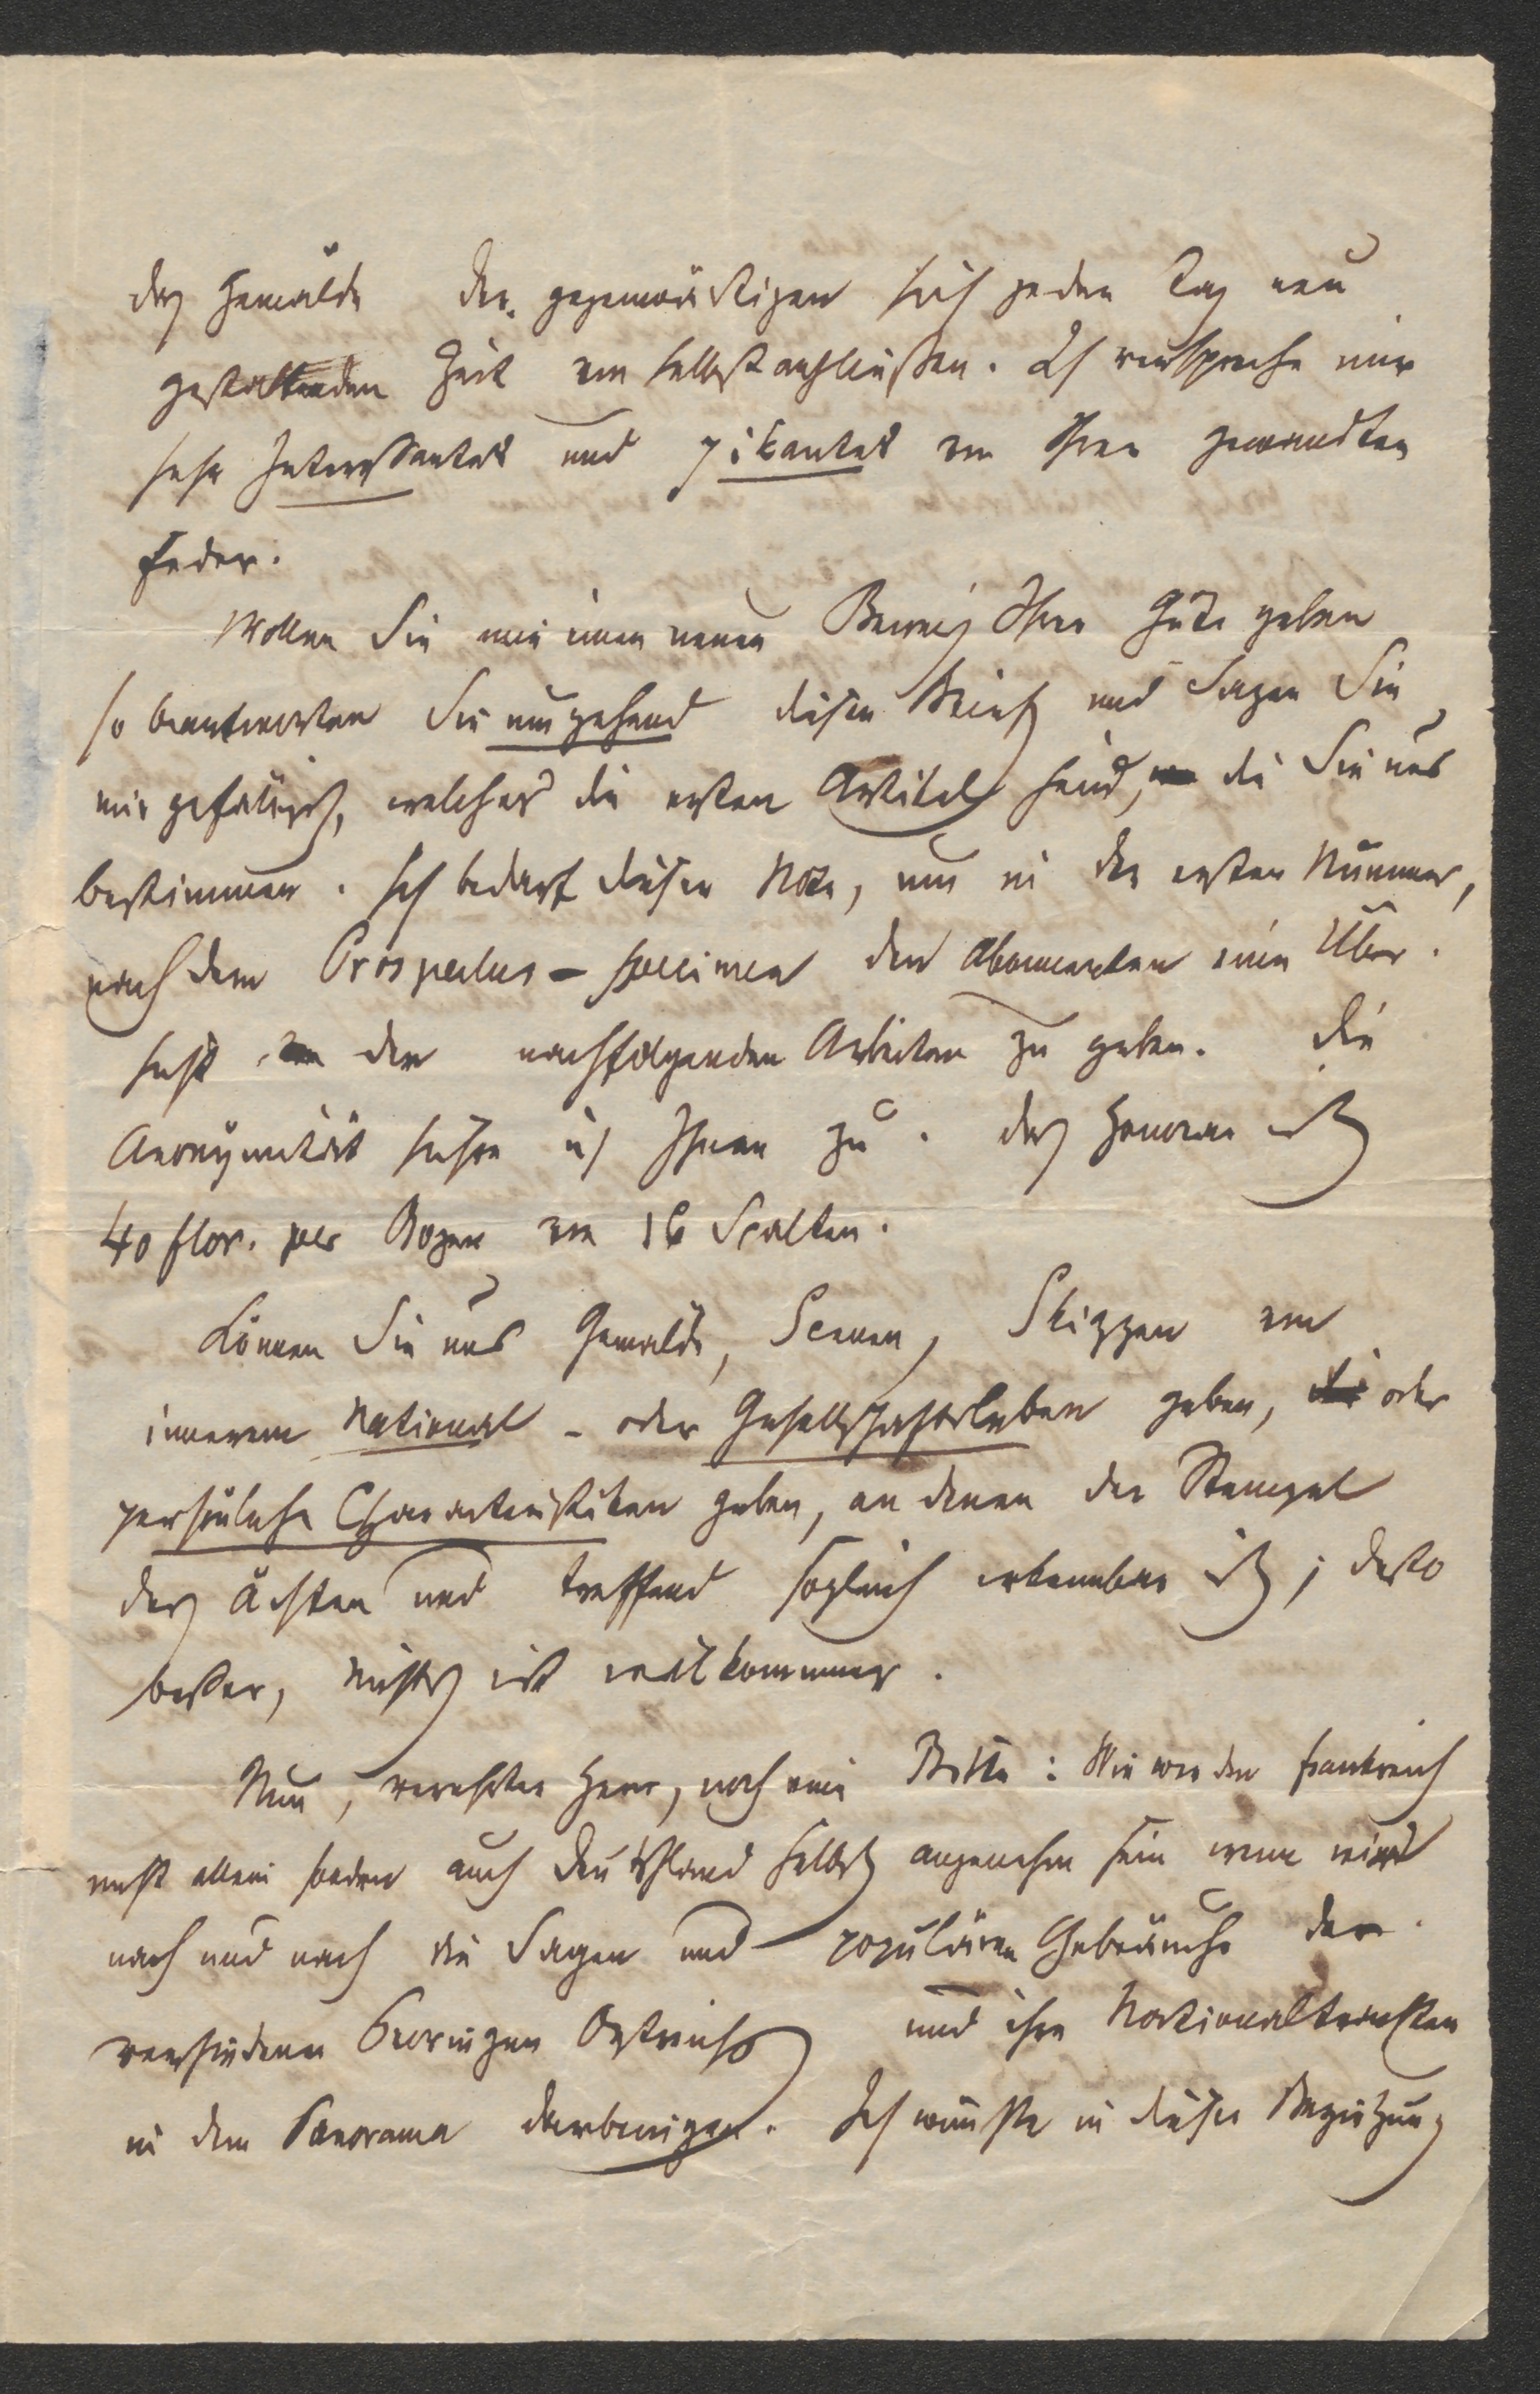 das Gemälde der gegenwärtigen sich jeden Tag neu
gestaltenden Zeit von selbst anschließen. Ich verspreche mir
sehr Interessantes und pikantes von Ihrer gewandten
Feder.
Wollen Sie mir einen neuen Beweis Ihrer Güte geben
so beantworten Sie umgehend diesen Brief und sagen Sie
mir gefälligst, welches die ersten Artikel sind, die Sie uns
bestimmen. Ich bedarf dieser Note, um in der ersten Nummer,
nach dem Prospectus - specimen den Abonnenten eine Über-
sicht der nachfolgenden Arbeiten zu geben. Die
Anonymität sichre ich Ihnen zu. Das Honorar ist
40 flor. per Bogen von 16 Spalten.
Können Sie uns Gemälde, Scenen, Skizzen von
innerem National - oder Gesellschaftsleben geben, oder
persönliche Characteristiken geben, an denen der Stempel
des ächten und treffend sogleich erkennbar ist; desto
besser, nichts ist willkommner.
Nun, verehrter Herr, noch eine Bitte: Wie würde Frankreich
nicht allein sondern auch Deutschland selbst angenehm sein wenn wir
nach und nach die Sagen und populären Gebräuche der
verschiedenen Provinzen Östreichs und ihre Nationaltrachten
in dem Panorama darbringen. Ich wünschte in dieser Beziehung